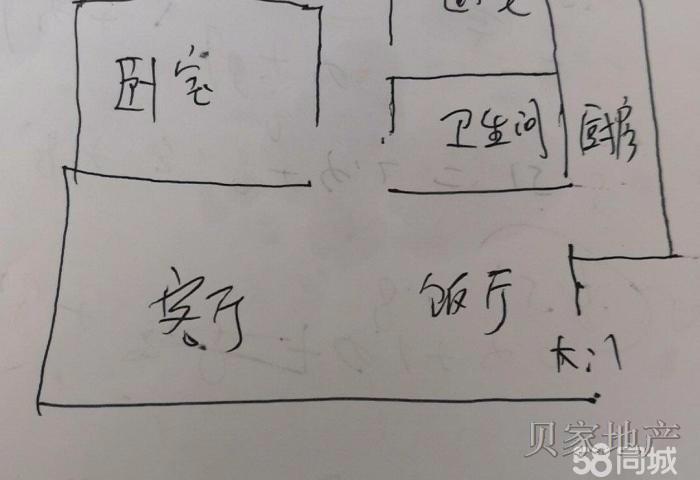 卧室
卫生间
厨房
客厅
饭厅
大门
贝家地产
58同城